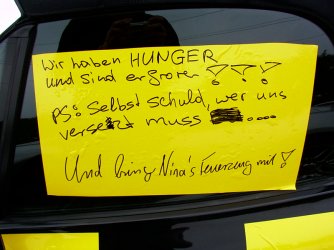 Wir haben HUNGER
und sind erfroren !!!
PS: Selbst schuld, wer uns
versetzt muss ....
Und bring Nina's Feuerzeug mit !